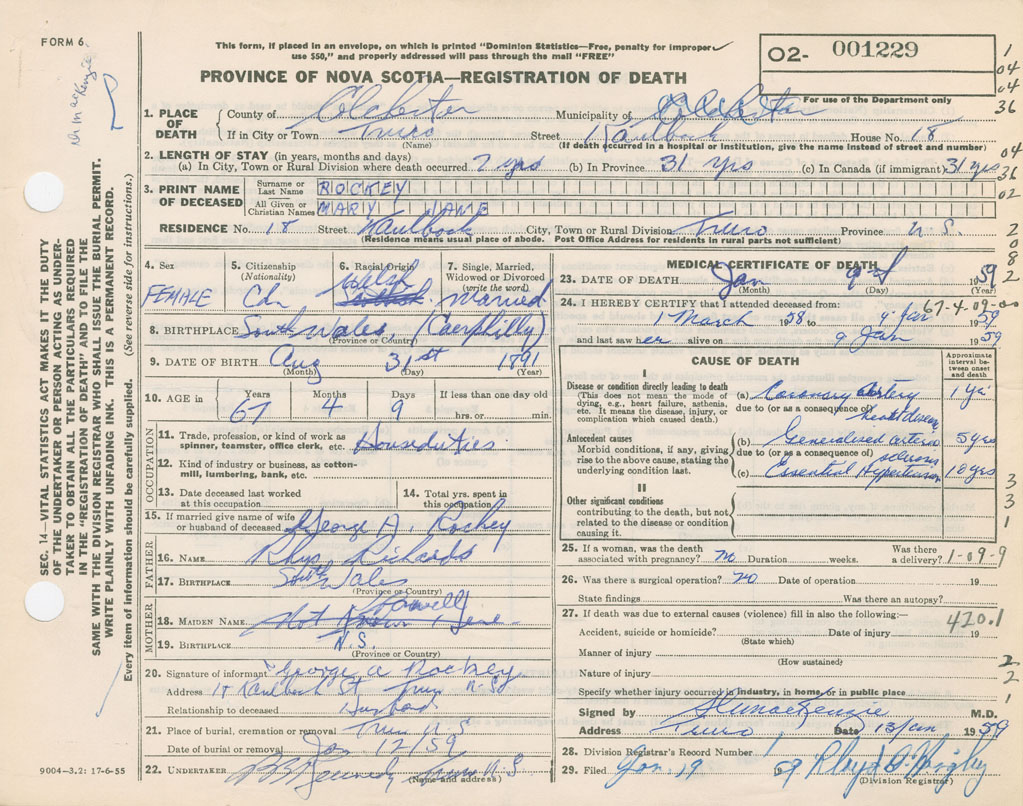 FORM 6.
This form, if placed in an envelope, on which is printed "Dominion Statistics—Free, penalty for improper
use $50," and properly addressed will pass through the mail "FREE"
PROVINCE OF NOVA SCOTIA—REGISTRATION OF DEATH
O2- 001229
For use of the Department only
1
04
04
36
04
36
02
2
0
8
2
3
3
1
2
2
1
SEC. 14—VITAL STATISTICS ACT MAKES IT THE DUTY
OF THE UNDERTAKER OR PERSON ACTING AS UNDER-
TAKER TO OBTAIN ALL THE PARTICULARS REQUIRED
IN THE "REGISTRATION OF DEATH" AND TO FILE THE
SAME WITH THE DIVISION REGISTRAR WHO SHALL ISSUE THE BURIAL PERMIT.
WRITE PLAINLY WITH UNFADING INK. THIS IS A PERMANENT RECORD.
Every item of information should be carefully supplied. (See reverse side for instructions.)
1. PLACE OF DEATH County of Colchester Municipality of Colchester
If in City or Town Truro Street Kaulback House No. 18
(Name) (If death occurred in a hospital or institution, give the name instead of street and number)
2. LENGTH OF STAY (in years, months and days)
(a) In City, Town or Rural Division where death occurred 2 yrs (b) In Province 31 yrs (c) In Canada (if immigrant) 31 yrs
3. PRINT NAME OF DECEASED Surname or Last Name ROCKEY
All Given or Christian Names MARY JANE
RESIDENCE No. 18 Street Kaulback City, Town or Rural Division Truro Province N.S.
(Residence means usual place of abode. Post Office Address for residents in rural parts not sufficient)
4. Sex 5. Citizenship (Nationality) 6. Racial Origin 7. Single, Married, Widowed or Divorced (write the word)
FEMALE Cdn Welsh Married
8. BIRTHPLACE South Wales, (Caerphilly)
(Province or Country)
9. DATE OF BIRTH Aug 31st 1891
(Month) (Day) (Year)
10. AGE in Years Months Days If less than one day old
67 4 9 hrs. or min.
OCCUPATION
11. Trade, profession, or kind of work as spinner, teamster, office clerk, etc. Houseduties
12. Kind of industry or business, as cotton-mill, lumbering, bank, etc.
13. Date deceased last worked at this occupation 14. Total yrs. spent in this occupation
15. If married give name of wife or husband of deceased George A. Rockey
FATHER
16. NAME Rhys Richards
17. BIRTHPLACE South Wales
(Province or Country)
MOTHER
18. MAIDEN NAME Not Known Jane
19. BIRTHPLACE N.S.
(Province or Country)
20. Signature of informant George A Rockey
Address 18 Kaulback St Truro N.S.
Relationship to deceased Husband
21. Place of burial, cremation or removal Truro N.S
Date of burial or removal Jan 12/59
22. UNDERTAKER Truro N.S
(Name and address)
9004—3.2: 17-6-55
MEDICAL CERTIFICATE OF DEATH
23. DATE OF DEATH Jan 9th 1959
(Month) (Day) (Year)
24. I HEREBY CERTIFY that I attended deceased from: 67-4-09-00
1 March 1958 to 9 Jan 1959
and last saw her alive on 9 Jan 1959
CAUSE OF DEATH
Approximate interval between onset and death
I
Disease or condition directly leading to death
(This does not mean the mode of dying, e.g., heart failure, asthenia, etc. It means the disease, injury, or complication which caused death.)
(a) Coronary artery 1 yr
due to (or as a consequence of) heart disease
Antecedent causes
Morbid conditions, if any, giving rise to the above cause, stating the underlying condition last.
(b) Generalised arterio 5 yrs
due to (or as a consequence of) sclerosis
(c) Essential Hypertension 10 yrs
II
Other significant conditions
contributing to the death, but not related to the disease or condition causing it.
25. If a woman, was the death associated with pregnancy? no Duration weeks. Was there a delivery? 1-09-9
26. Was there a surgical operation? no Date of operation 19
State findings Was there an autopsy?
27. If death was due to external causes (violence) fill in also the following:—
420.1
Accident, suicide or homicide? Date of injury 19
(State which)
Manner of injury
(How sustained)
Nature of injury
Specify whether injury occurred in industry, in home, or in public place
Signed by M.D.
Address Truro Date 13 Jan 1959
28. Division Registrar's Record Number 1
29. Filed Jan. 19 1959
(Division Registrar)